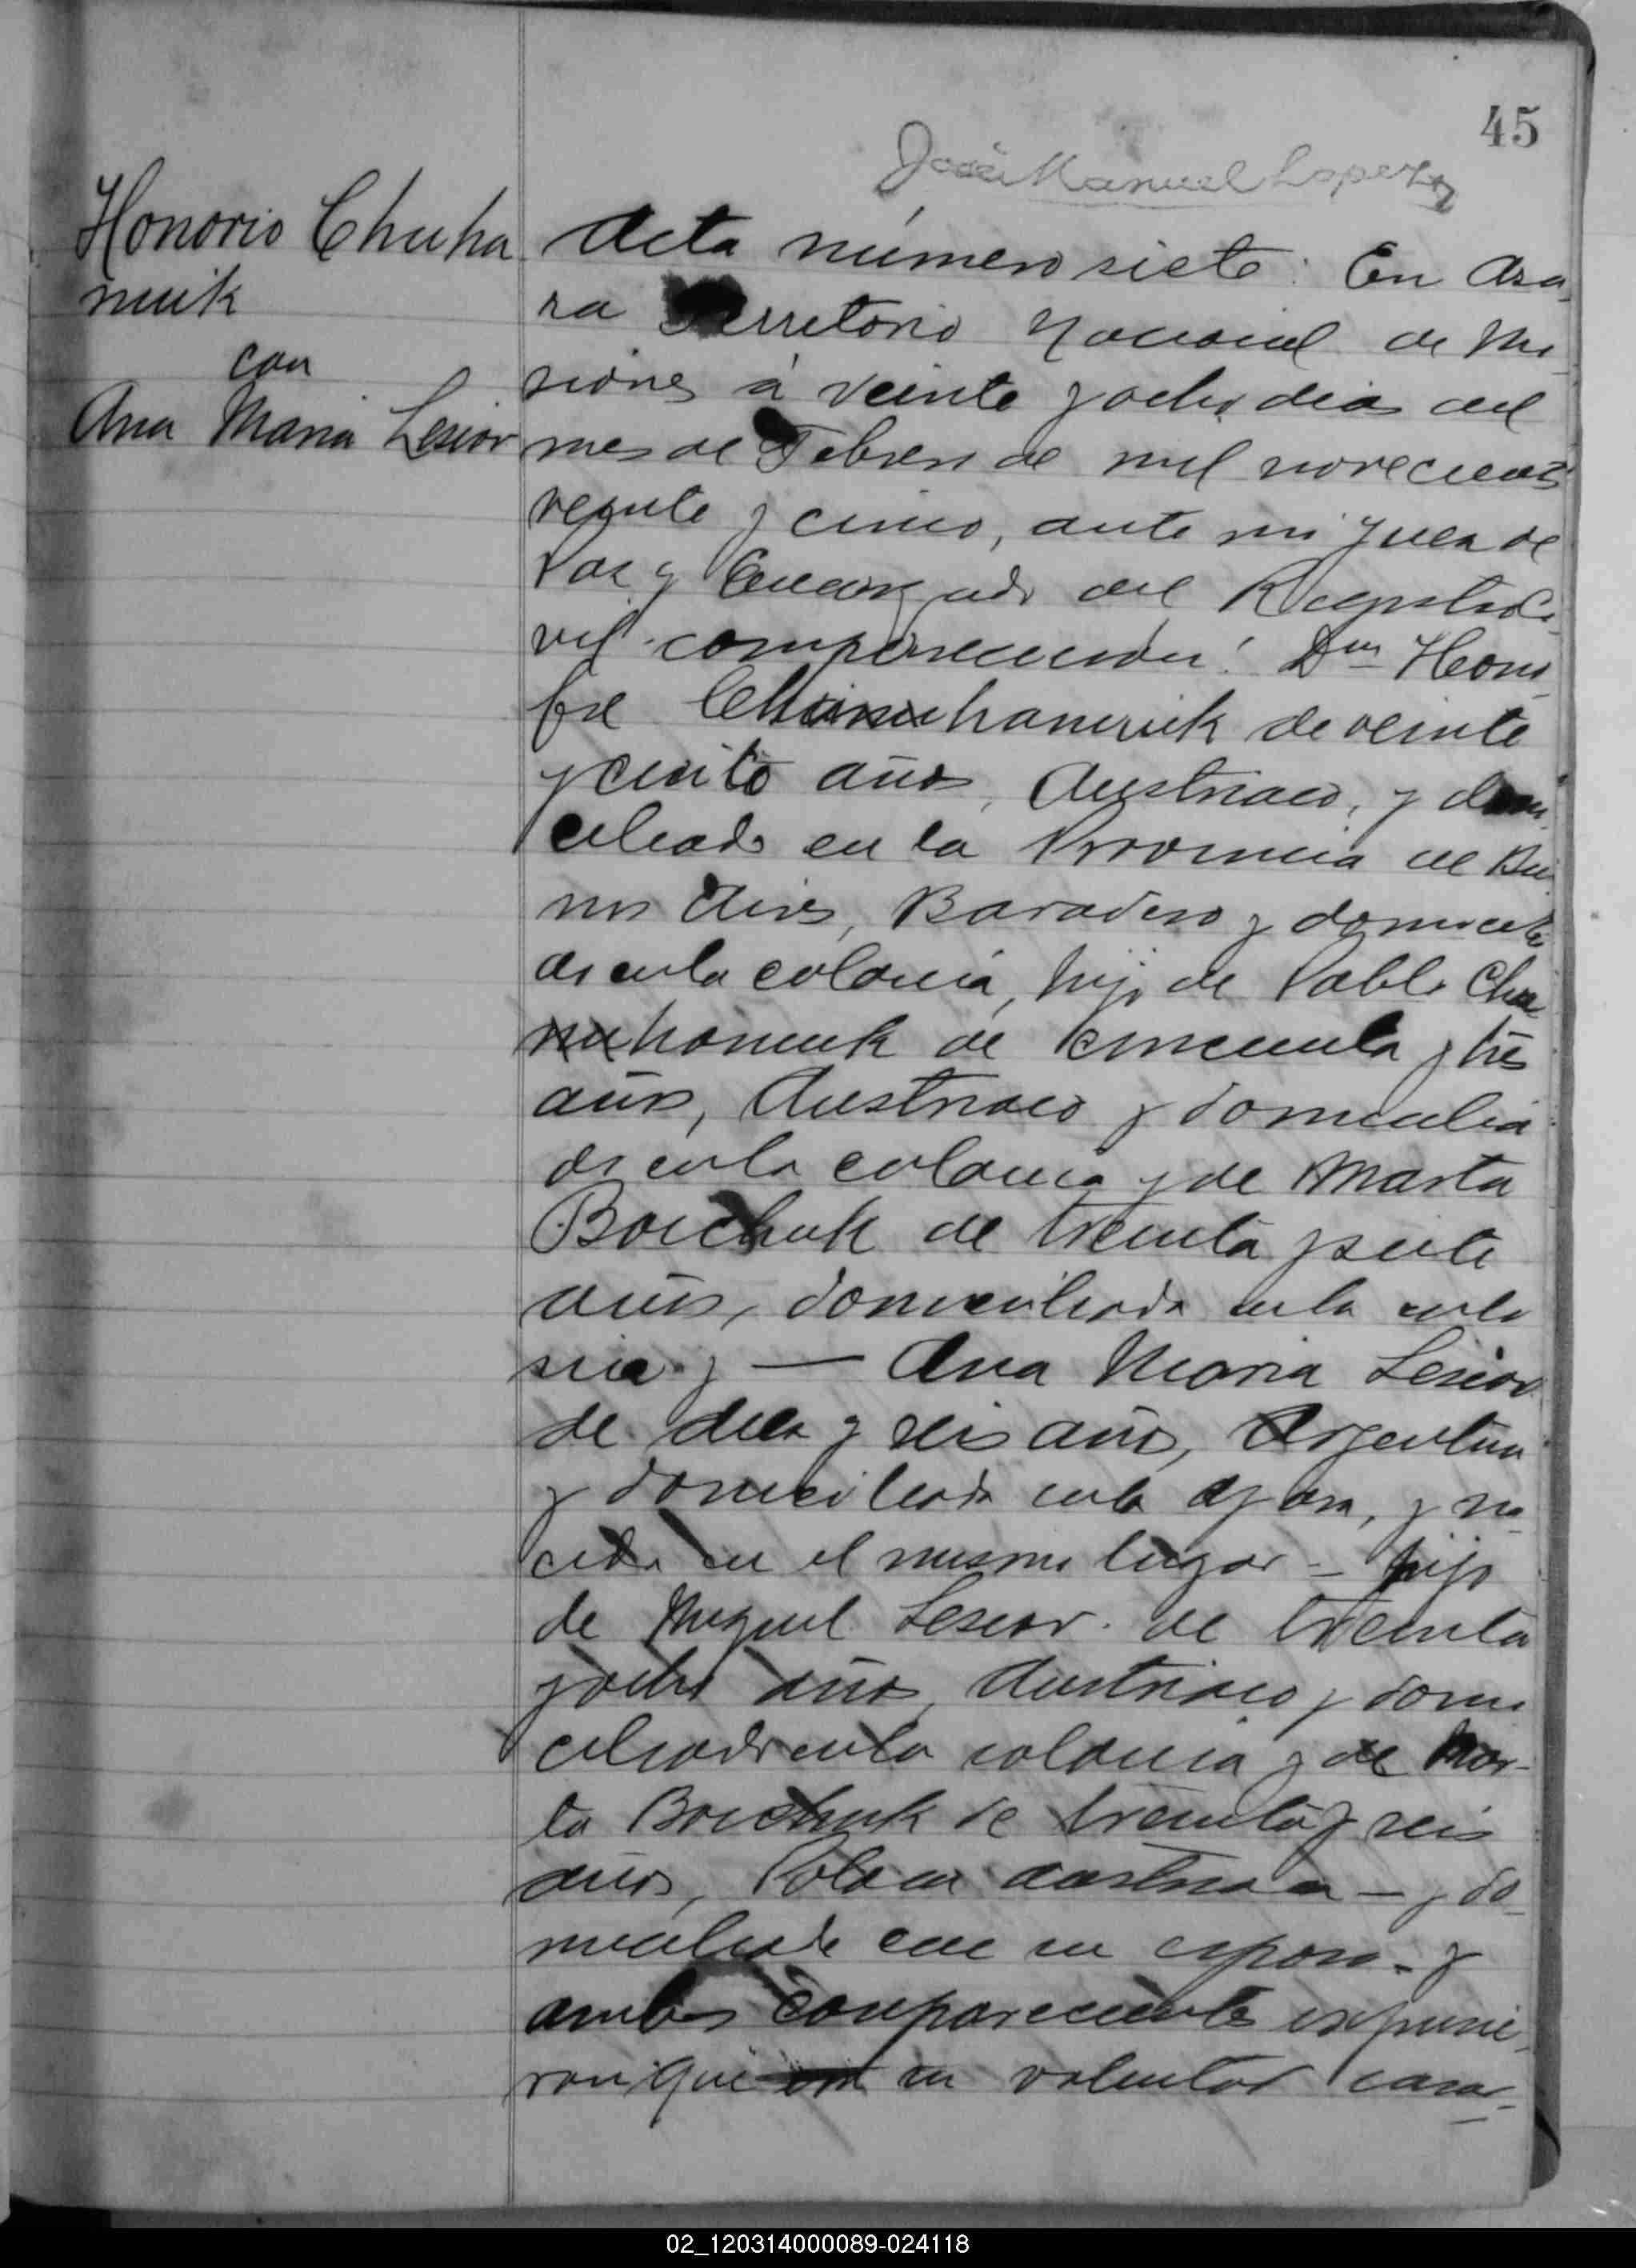 45
José Manuel Lopez
Honorio Chuha
niuk
con
Ana Maria Lesior
Acta número siete: En Aza
ra Territorio Nacional de Mi
siones á veinte y ocho dias del
mes de Febrero de mil novecientos
veinte y cinco, ante mi Juez de
Paz y Encargado del Registro Ci
vil comparecieron: Dn Hono
fre haniuk de veinte
y años, Austriaco, y domi
ciliado en la Provincia de Bue
nos Aires, Baradero y domicilia
do en la colonia, hijo de Pablo Chu
haniuk de cincuenta y tres
años, Austriaco y domicilia
do en la colonia y de Marta
Boichuk de treinta y siete
años, domiciliada en la colo
nia y — Ana Maria Lesior
de diez y seis años, Argentina
y domiciliada en la, y na
cida en el mismo lugar - hija
de Miguel Lesior de treinta
y ocho años, Austriaco y domi
ciliado en la colonia y de Mar-
ta Boichuk de treinta y seis
años, Polaca austriaca — y do
miciliada con su esposo - y
ambos comparecientes expusie
ron que su voluntad casar
02_120314000089-024118